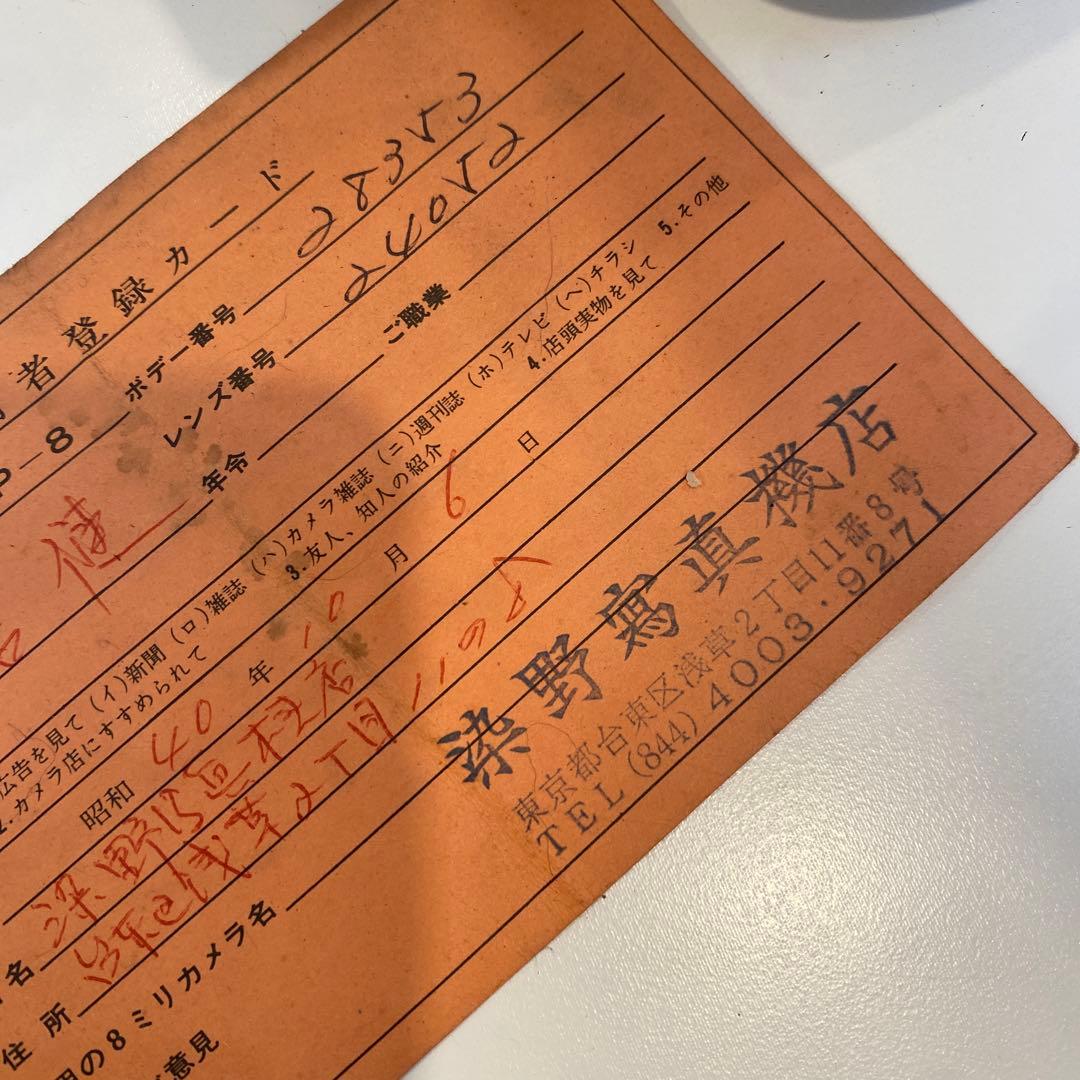 者登録カード
P-8 ボデー番号 28353
レンズ番号 24052
健 年令 ご職業
広告を見て (イ)新聞 (ロ)雑誌 (ハ)カメラ雑誌 (ニ)週刊誌 (ホ)テレビ (ヘ)チラシ
2.カメラ店にすすめられて 3.友人、知人の紹介 4.店頭実物を見て 5.その他
昭和 40 年 10 月 6 日
名 染野写真機店
住所 台東区浅草2丁目11の8
の8ミリカメラ名
意見
染野寫真機店
東京都台東区浅草2丁目11番8号
TEL (844) 4003・9271